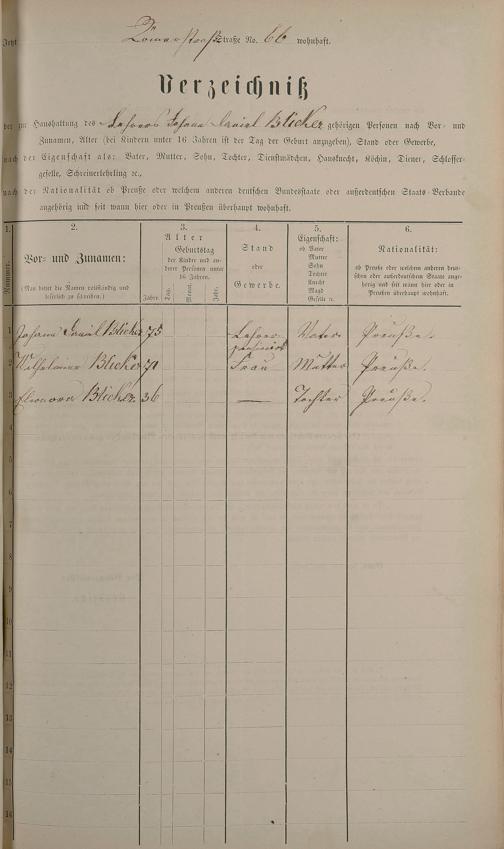 Jetzt Römerstraße Straße No. 66 wohnhaft.
Verzeichniß
der zur Haushaltung des Lehrers Johann Daniel Blicker gehörigen Personen nach Vor- und
Zunamen, Alter (bei Kindern unter 16 Jahren ist der Tag der Geburt anzugeben), Stand oder Gewerbe,
nach der Eigenschaft als: Vater, Mutter, Sohn, Tochter, Dienstmädchen, Hausknecht, Köchin, Diener, Schlosser-
geselle, Schreinerlehrling ꝛc.,
nach der Nationalität ob Preuße oder welchem anderen deutschen Bundesstaate oder außerdeutschen Staats-Verbande
angehörig und seit wann hier oder in Preußen überhaupt wohnhaft.
1.
Nummer.
2.
Vor- und Zunamen:
(Man bittet die Namen vollständig und
leserlich zu schreiben.)
3.
Alter
Geburtstag
der Kinder und an-
derer Personen unter
16 Jahren.
Jahre.
Tag.
Monat.
Jahr.
4.
Stand
oder
Gewerbe.
5.
Eigenschaft:
ob Vater
Mutter
Sohn
Tochter
Knecht
Magd
Geselle ꝛc.
6.
Nationalität:
ob Preuße oder welchem anderen deut-
schen oder außerdeutschen Staate ange-
hörig und seit wann hier oder in
Preußen überhaupt wohnhaft.
1 Johann Daniel Blicker 75 Lehrer pensionirt Vater Preuße.
2 Wilhelmine Blicker 71 Frau Mutter Preuße.
3 Eleonora Blicker 36 — Tochter Preuße.
4
5
6
7
8
9
10
11
12
13
14
15
16